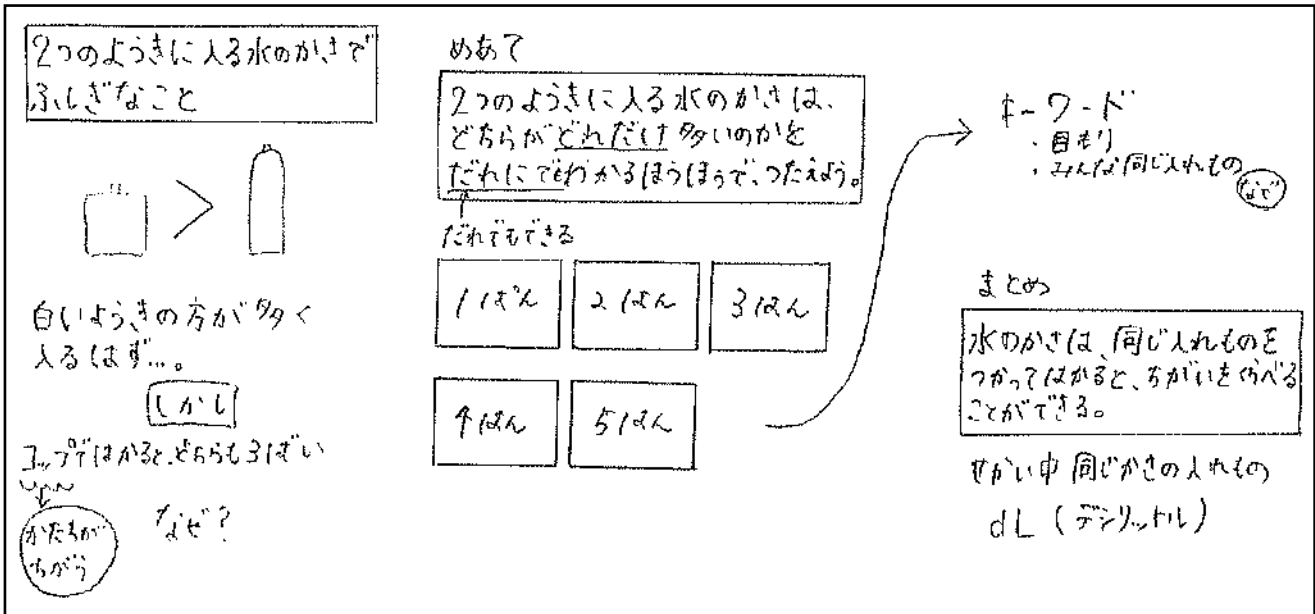 2つのようきに入る水のかさで
ふしぎなこと
>
白いようきの方が多く
入るはず…。
しかし
コップではかると、どちらも3ばい
かたちが
ちがう
なぜ?
めあて
2つのようきに入る水のかさは、
どちらがどれだけ多いのかを
だれにでもわかるほうほうで、つたえよう。
だれでもできる
1ぱん
2はん
3はん
4はん
5はん
キーワード
・目もり
・みんな同じ入れもの
なぜ
まとめ
水のかさは、同じ入れものを
つかってはかると、ちがいをくらべる
ことができる。
せかい中同じかさの入れもの
dL(デシリットル)